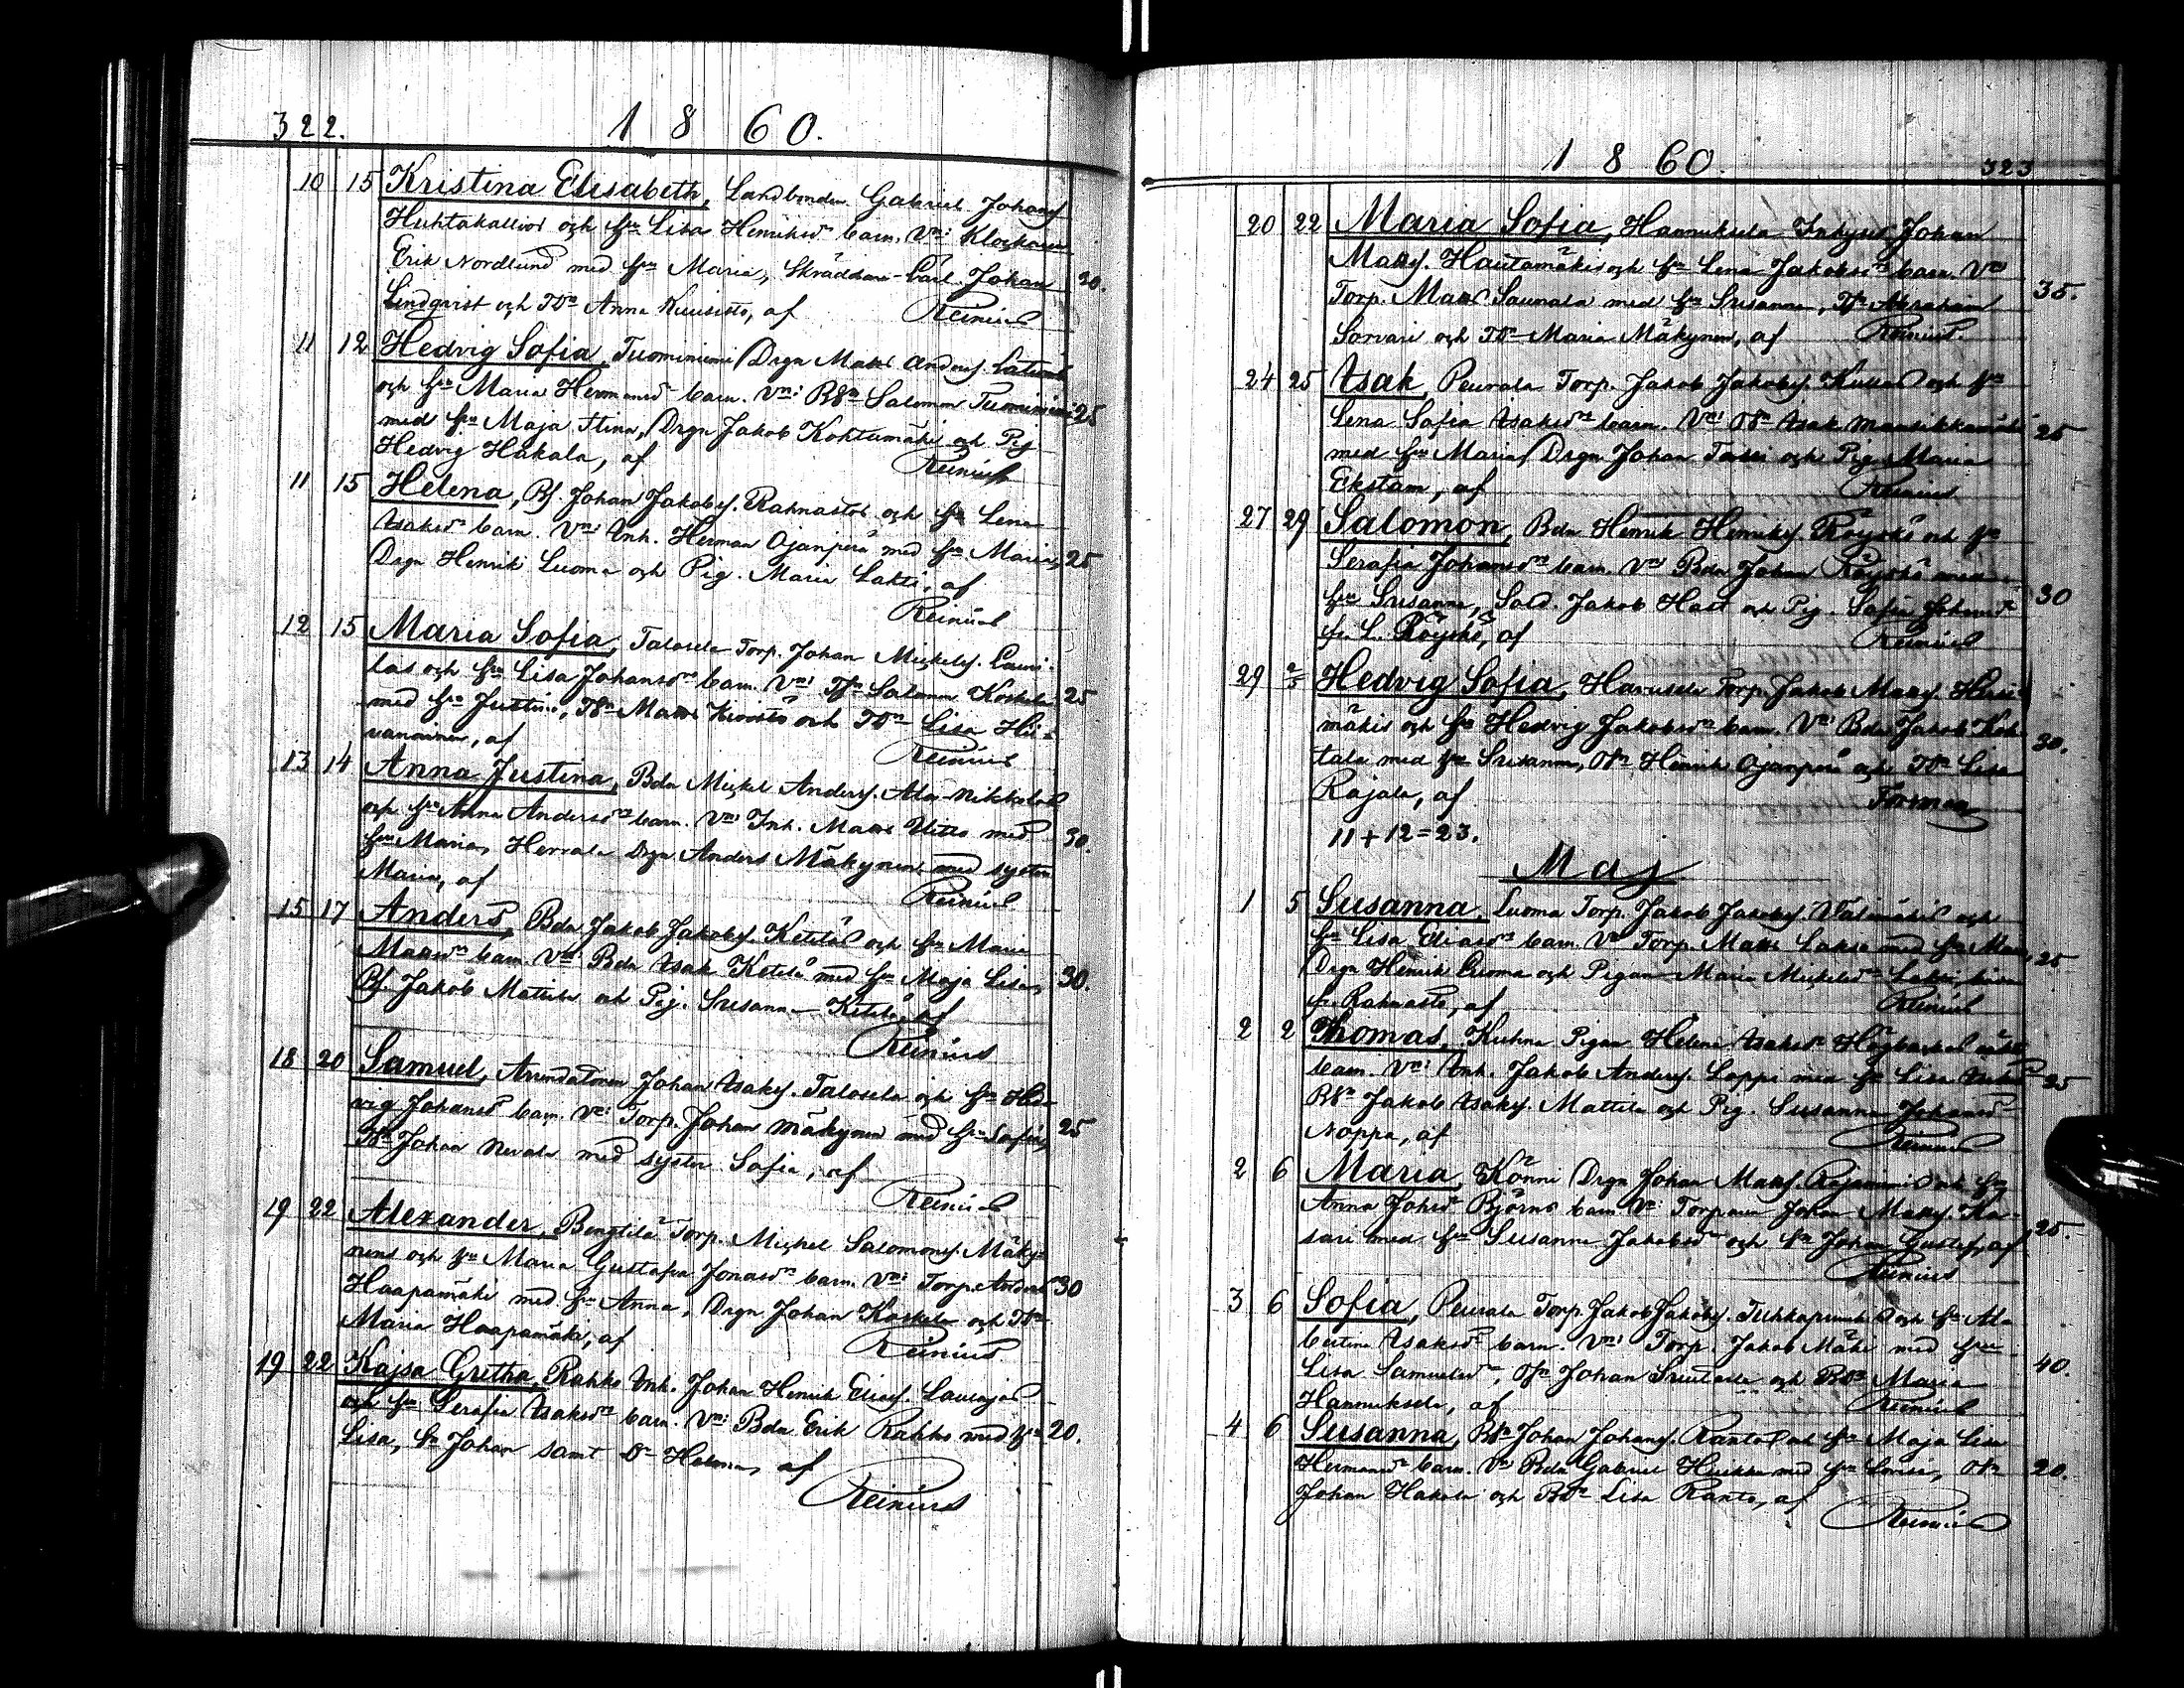 322.
1 8 60.
10 15 Kristina Elisabeth, Landbonden Gabriel Johans.
Huhtakallios och hu Lisa Henriksdr barn. Vn: Klockaren
Erik Nordlund med hu Maria, Skräddare Carl Johan 20.
Lindqvist och Tdn Anna Kuusisto, af Reinius
11 12 Hedvig Sofia, Tuominiemi Drgn Matts Anders.
och hu Maria Hermansdr barn. Vn: Bdn Salomon Tuominiemi 25
med hu Maja Stina, Drgn Jakob Kohtamäki och Pig.
Hedvig Hakala, af Reinius
11 15 Helena, Bs. Johan Jakobs. Rahnastos och hu Lena
Isaksdr barn. Vn: Inh. Herman Ojanperä med hu Maria, 25
Drgn Henrik Luoma och Pig. Maria Lahti, af
Reinius
12 15 Maria Sofia, Talosela Torp. Johan Mickels. Lauri-
las och hu Lisa Johansdr barn. Vn: Tsn Salomon Koskela 25
med hu Justina, Tsn Matts Kivistö och Tdn Lisa Hii-
vanainen, af Reinius
13 14 Anna Justina, Bdn Mickel Anders. Ala-Nikkolas
och hu Anna Andersdr barn. Vn: Inh. Matts Uitto med 30.
hu Maria, Herrala Drgn Anders Mäkynen med syster
Maria, af Reinius
15 17 Anders, Bdn Jakob Jakobs. Ketiläs och hu Maria
Mattsdr barn. Vn: Bdn Isak Ketilä med hu Maja Lisa, 30.
Bs. Jakob Mattila och Pig. Susanna Ketilä, af
Reinius
18 20 Samuel, Arrendatoren Johan Isaks. Talosela och hu Hed-
vig Johansdr barn. Vn: Torp. Johan Mäkynen med hu Sofia, 25
Tsn Johan Nevala med syster Sofia, af
Reinius
19 22 Alexander, Bengtilä Torp. Mickel Salomons. Mäky-
nens och hu Maria Gustafva Jonasdr barn. Vn: Torp. Anders 30
Haapamäki med hu Anna, Drgn Johan Koskela och Tdn
Maria Haapamäki, af Reinius
19 22 Kajsa Gretha, Rahko Inh. Johan Henrik Elias.
och hu Serafia Isaksdr barn. Vn: Bdn Erik Rahko med hu 20.
Lisa, Sn Johan samt Dr Helena, af
Reinius
1 8 60. 323
20 22 Maria Sofia, Hannuksela Inhyses Johan
Matts. Hautamäkis och hu Lena Jakobsdr barn. Vn:
Torp. Matts Saunala med hu Susanna, Tsn Abraham 35.
Sorvari och Tdn Maria Mäkynen, af Reinius
24 25 Isak, Peurala Torp. Jakob Jakobs. Kullas och hu
Lena Sofia Isaksdr barn. Vn: Isak Mansikkamäki 25
med hu Maria, Drgn Johan Tassi och Pig. Maria
Ekstam, af Reinius
27 29 Salomon, Bdn Henrik Henriks. Röyskös och hu
Serafia Johansdr barn. Vn: Bdn Johan Röyskö med
hu Susanna, Sold. Jakob Hast och Pig. Sofia Johansdr 30
fr. L. Röyskö, af Reinius
29 2/5 Hedvig Sofia, Harusela Torp. Jakob Matts.
mäkis och hu Hedvig Jakobsdr barn. Vn: Bdn Jakob Koh-
tala med hu Susanna, Henrik Ojanperä och Tdn Lisa 30.
Rajala, af Forsman
11 + 12 = 23.
Maj
1 5 Susanna, Luoma Torp. Jakob Jakobs. Välimäkis och
hu Lisa Eliasdr barn. Vn: Torp. Matts Laksо med hu Maria, 25
Drgn Henrik Luoma och Pigan Maria Mickelsdr Lahti,
fr. Rahnasto, af Reinius
2 2 Thomas, Kuhna Pigan Helena Isaksdr Högbackas
barn. Vn: Inh. Jakob Anders. Loppi med hu Lisa 25
Bsn Jakob Isaks. Mattila och Pig. Susanna Johansdr
Noppa, af Reinius
2 6 Maria, Könni Drgn Johan Matts. Rajaniemis och hu
Anna Johsdr Björns barn. Vn: Torparen Johan Matts. Ka-
sari med hu Susanna Jakobsdr och Sn Johan Gustaf, af 25.
Reinius
3 6 Sofia, Peurala Torp. Jakob Jakobs. och hu Al-
bertina Isaksdr barn. Vn: Torp. Jakob Mäki med hu
Lisa Samuelsdr, Johan Sarvela och Bdr Maria 40.
Hannuksela, af Reinius
4 6 Susanna, Bsn Johan Johans. Rantas och hu Maja Lisa
Hermansdr barn. Vn: Bdn Gabriel Heikka med hu Lovisa, 20.
Johan Hakola och Bdr Lisa Ranto, af
Reinius